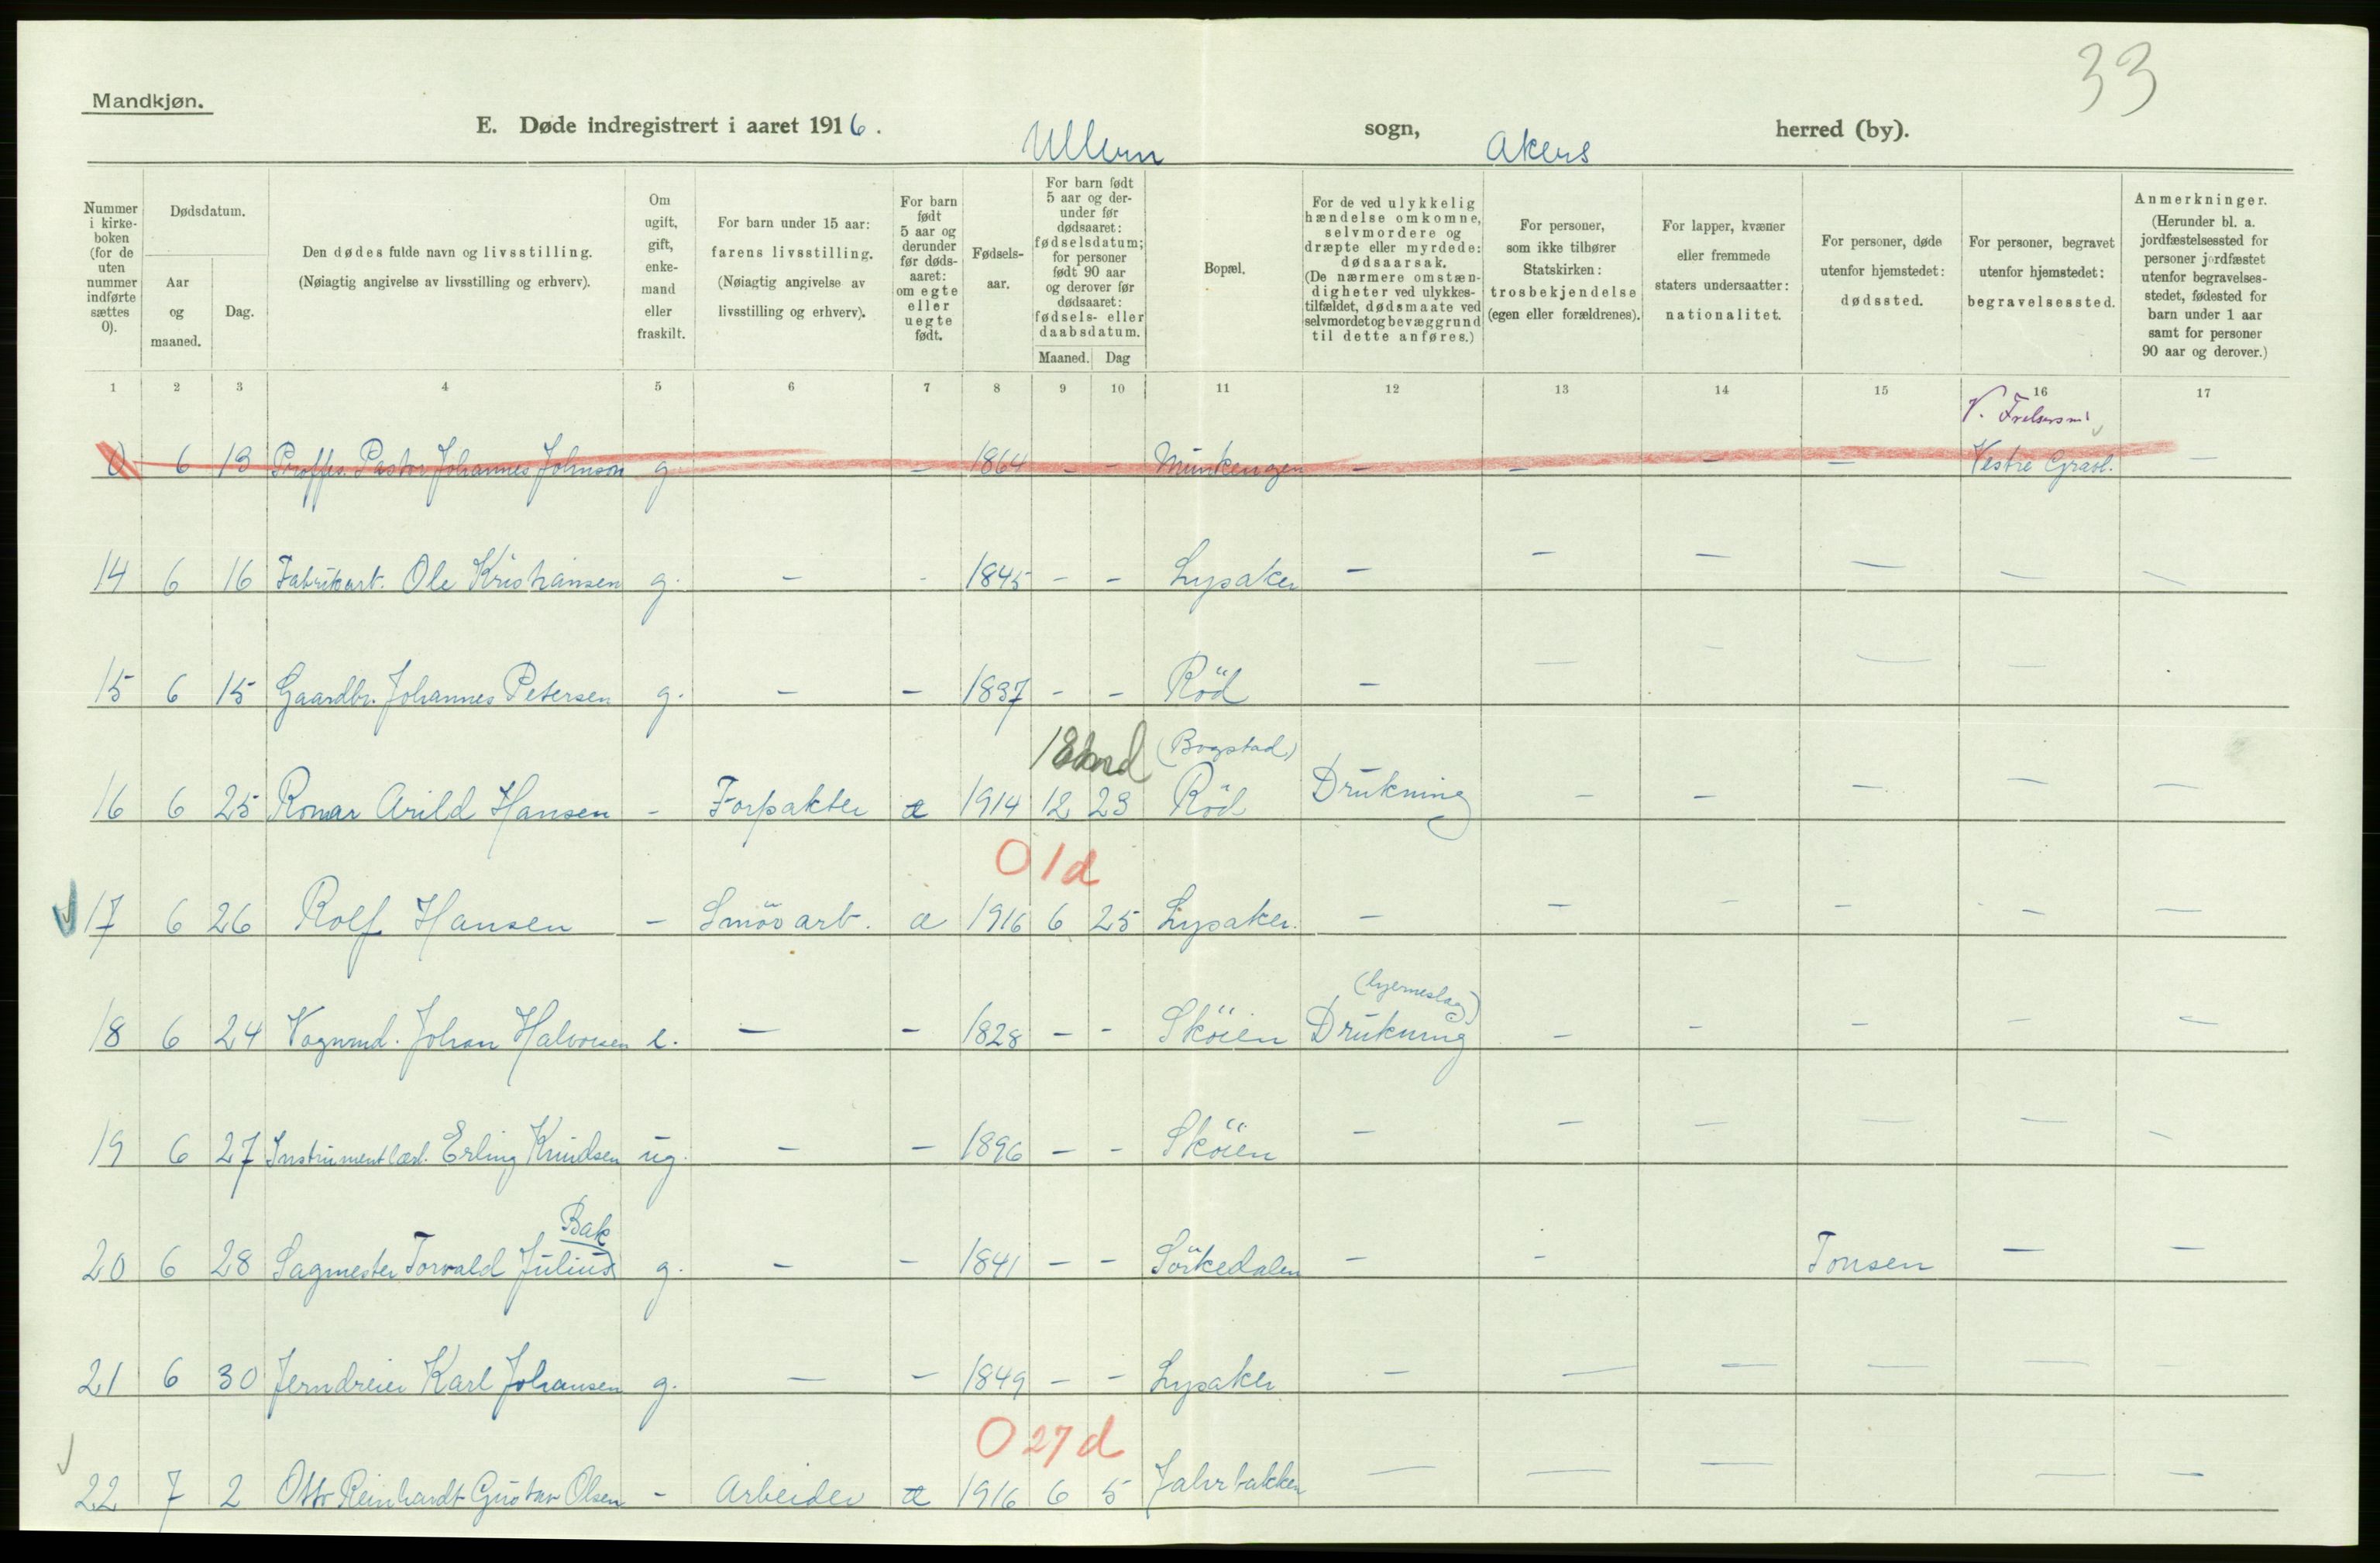 33
Mandkjøn.
E. Døde indregistrert i aaret 1916. Ullern sogn, Akers herred (by).
Nummer i kirkeboken (for de uten nummer indførte sættes 0).
Dødsdatum.
Aar og maaned.
Dag.
Den dødes fulde navn og livsstilling. (Nøiagtig angivelse av livsstilling og erhverv).
Om ugift, gift, enkemand eller fraskilt.
For barn under 15 aar: farens livsstilling. (Nøiagtig angivelse av livsstilling og erhverv).
For barn født 5 aar og derunder før dødsaaret: om egte eller uegte født.
Fødselsaar.
For barn født 5 aar og derunder før dødsaaret: fødselsdatum; for personer født 90 aar og derover før dødsaaret: fødsels- eller daabsdatum.
Maaned. Dag
Bopæl.
For de ved ulykkelig hændelse omkomne, selvmordere og dræpte eller myrdede: dødsaarsak. (De nærmere omstændigheter ved ulykkestilfældet, dødsmaate ved selvmordet og bevæggrund til dette anføres.)
For personer, som ikke tilhører Statskirken: trosbekjendelse (egen eller forældrenes).
For lapper, kvæner eller fremmede staters undersaatter: nationalitet.
For personer, døde utenfor hjemstedet: dødssted.
For personer, begravet utenfor hjemstedet: begravelsessted.
Anmerkninger. (Herunder bl. a. jordfæstelsessted for personer jordfæstet utenfor begravelsesstedet, fødested for barn under 1 aar samt for personer 90 aar og derover.)
1 2 3 4 5 6 7 8 9 10 11 12 13 14 15 16 17
V. Frelsersm
0 6 13 Proffes. Pastor Johannes Johnson g - 1864 - - Munkengen - - - - Vestre Gravl. -
14 6 16 Fabrikarb. Ole Kristiansen g. - - 1845 - - Lysaker - - - - - -
15 6 15 Gaardbr. Johannes Petersen g. - - 1837 - - Röd - - - - -
(Bogstad)
16 6 25 Romar Arild Hansen - Forpakter æ 1914 12 23 Röd Drukning - - - - -
0 1d
17 6 26 Rolf Hansen - Smörarb. æ 1916 6 25 Lysaker. - - - - - -
(hjerneslag)
18 6 24 Vognmd. Johan Halvorsen e. - - 1828 - - Sköien Drukning - - - - -
19 6 27 Instrumentlærl. Erling Knudsen ug. - - 1896 - - Sköien - - - - - -
Bak
20 6 28 Sagmester Torvald Julius g. - - 1841 - - Sörkedalen - - Tonsen - -
21 6 30 Jerndreier Karl Johansen g. - - 1849 - - Lysaker - - - - - -
0 27d
22 7 2 Otto Reinhardt Gustav Olsen - Arbeider æ 1916 6 5 Jahrbakken - - - - -